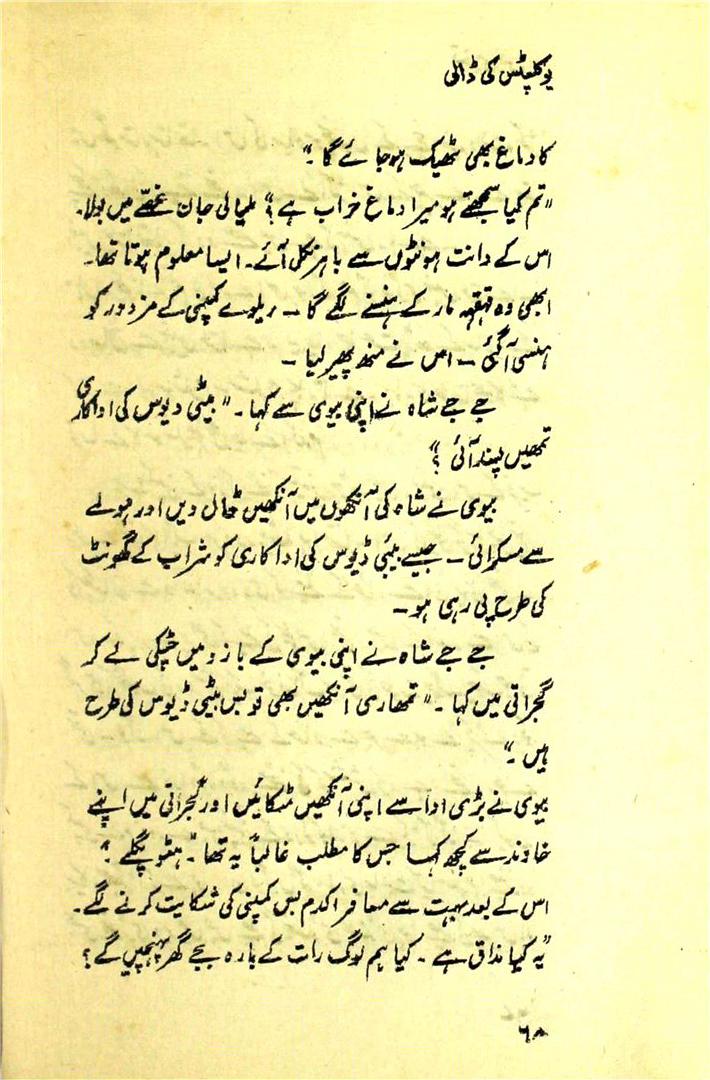 یوکلپٹس کی ڈالی
کا دماغ بھی ٹھیک ہو جائے گا۔"
"تم کیا سمجھتے ہو میرا دماغ خراب ہے؟" ملیالی جان غصّے میں بولا۔
اس کے دانت ہونٹوں سے باہر نکل آئے۔ ایسا معلوم ہوتا تھا۔
ابھی وہ قہقہہ مار کے ہنسنے لگے گا ۔ ریلوے کمپنی کے مزدور کو
ہنسی آگئی ۔ اس نے منھ پھیر لیا ۔
جے جے شاہ نے اپنی بیوی سے کہا۔ "بیٹی دیوس کی اداکاری
تمھیں پسند آئی ؟"
بیوی نے شاہ کی آنکھوں میں آنکھیں ڈال دیں اور ہولے
سے مسکرائی ۔ جیسے بیٹی ڈیوس کی اداکاری کو شراب کے گھونٹ
کی طرح پی رہی ہو ۔
جے جے شاہ نے اپنی بیوی کے بازو میں چٹکی لے کر
گجراتی میں کہا ۔ "تمھاری آنکھیں بھی تو بس بیٹی ڈیوس کی طرح
ہیں ۔"
بیوی نے بڑی ادا سے اپنی آنکھیں مٹکائیں اور گجراتی میں اپنے
خاوند سے کچھ کہا جس کا مطلب غالباً یہ تھا۔ "ہٹو پگلے ؛"
اس کے بعد بہت سے مسافر اکدم بس کمپنی کی شکایت کرنے لگے۔
"یہ کیا مذاق ہے ۔ کیا ہم لوگ رات کے بارہ بجے گھر پہنچیں گے؟
۶۸